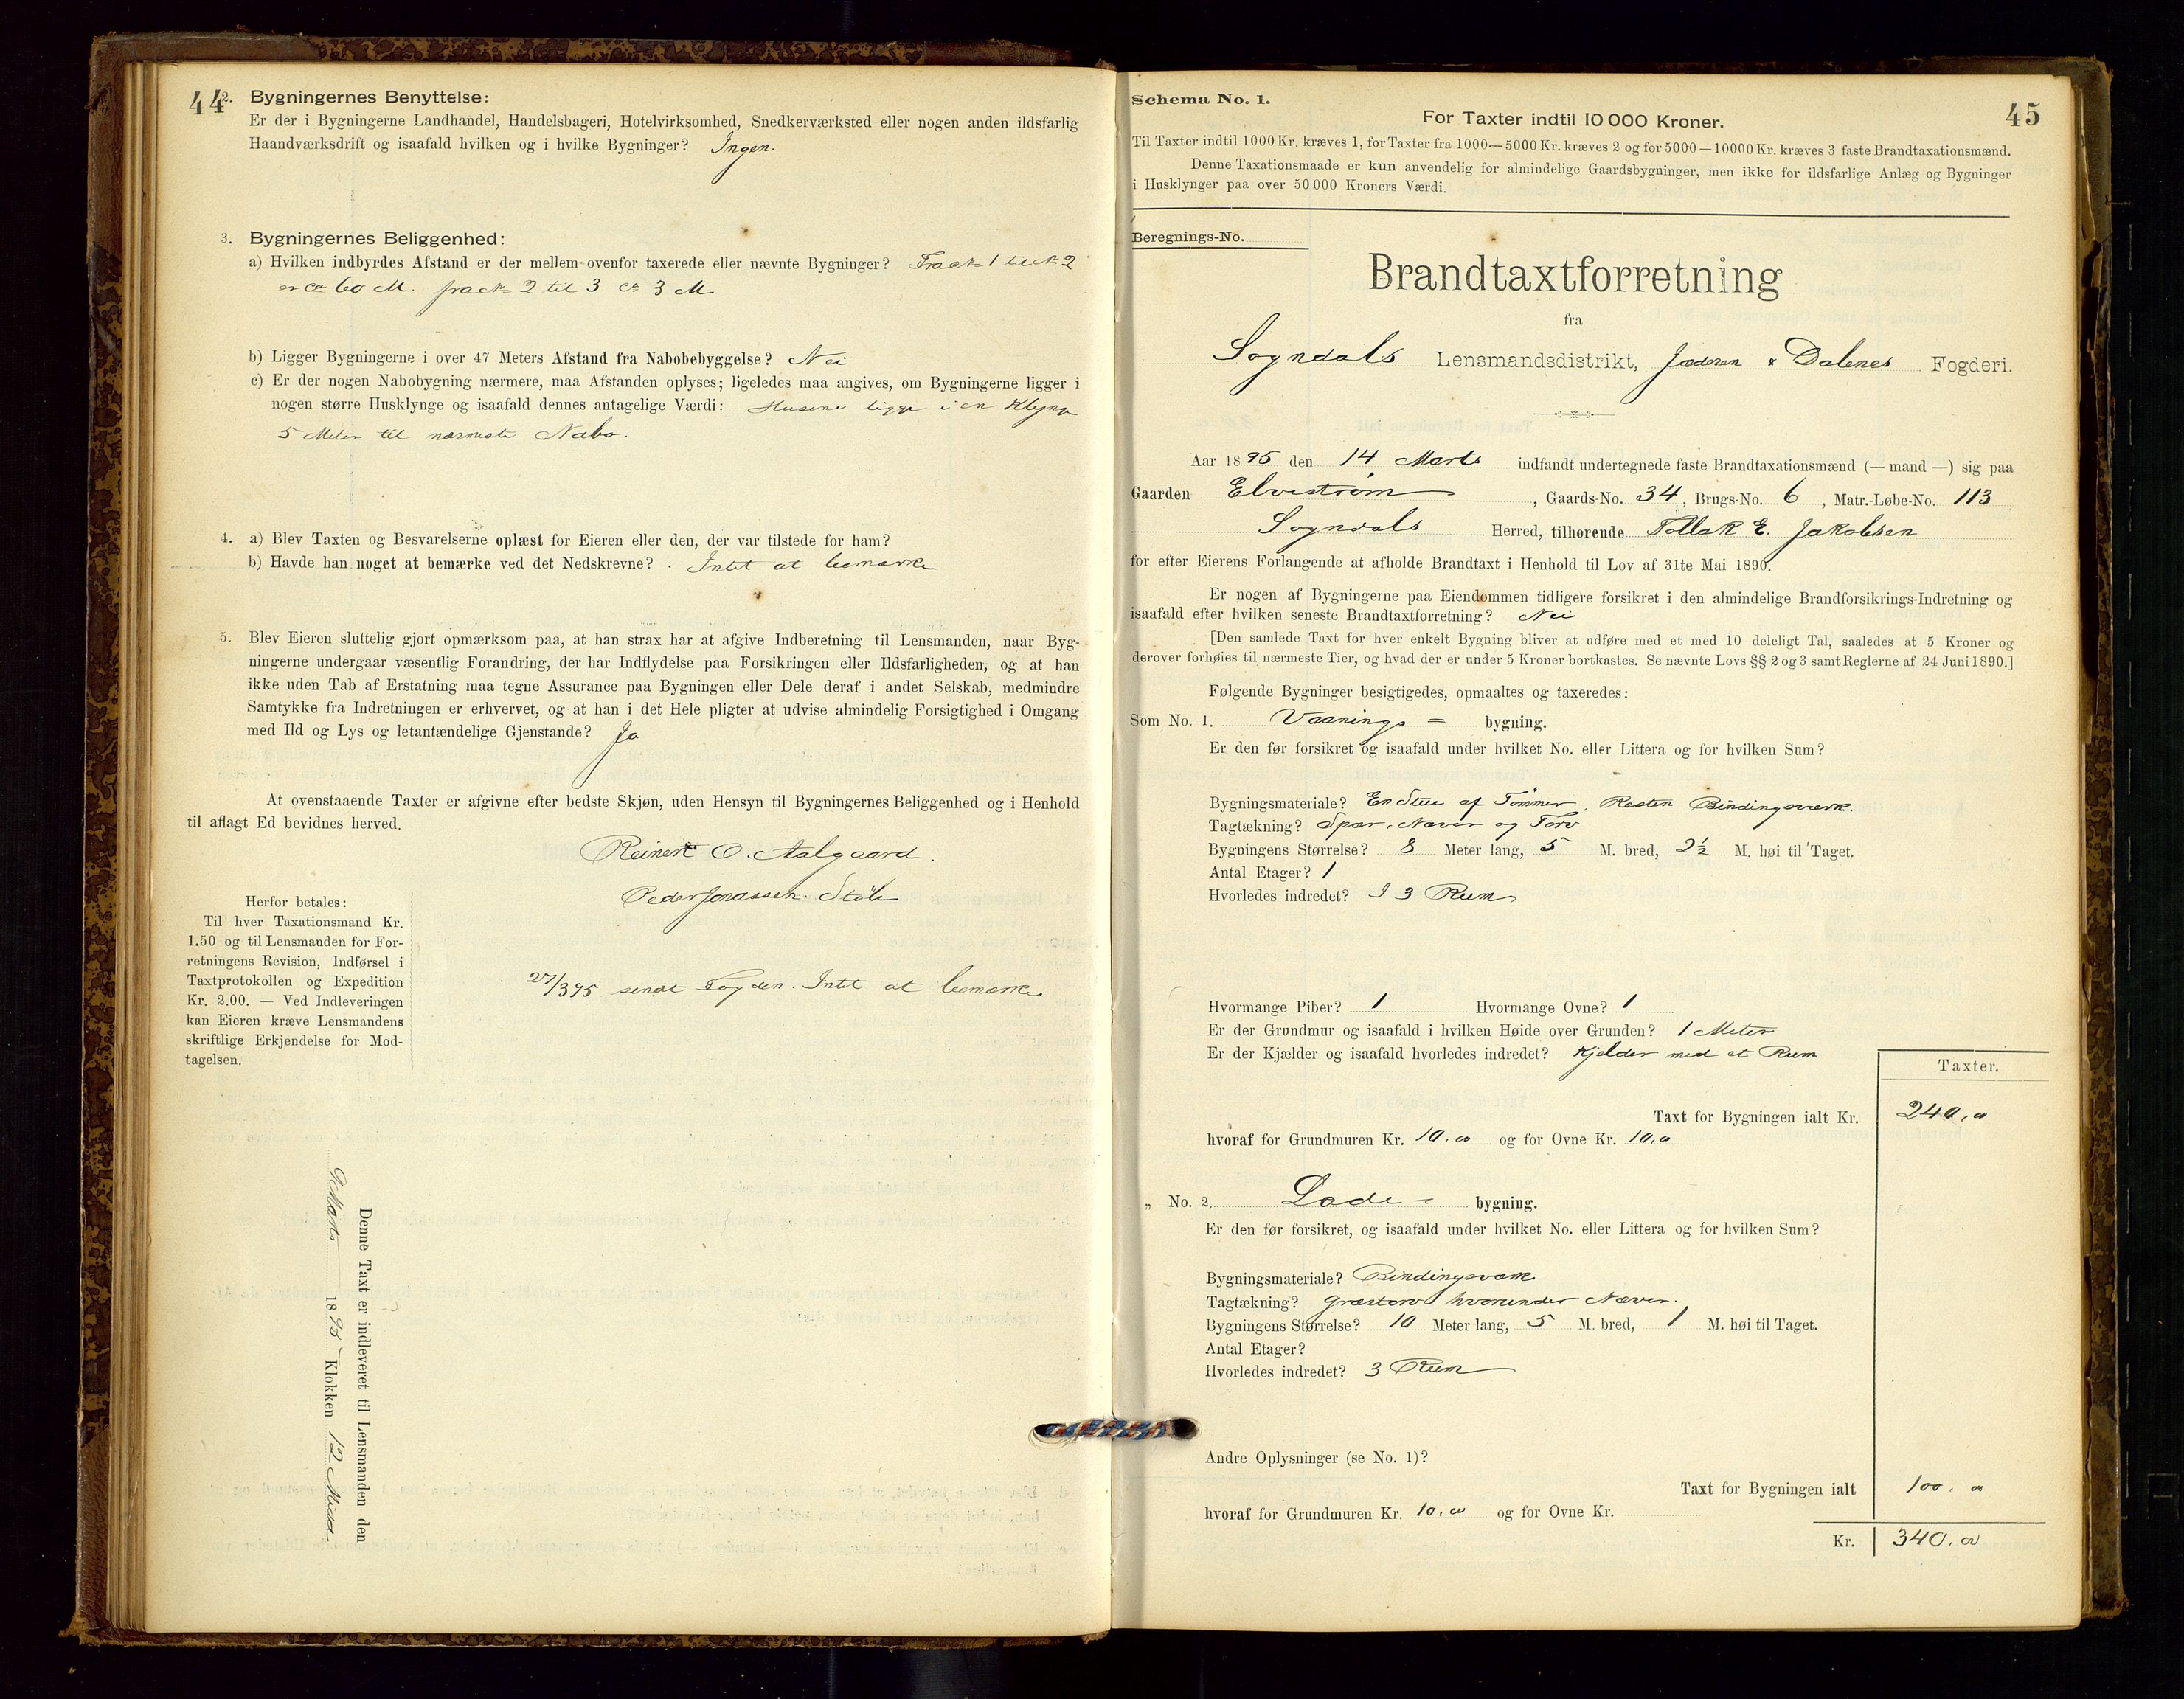 44
2. Bygningernes Benyttelse:
Er der i Bygningerne Landhandel, Handelsbageri, Hotelvirksomhed, Snedkerværksted eller nogen anden ildsfarlig
Haandværksdrift og isaafald hvilken og i hvilke Bygninger? Ingen.
3. Bygningernes Beliggenhed:
a) Hvilken indbyrdes Afstand er der mellem ovenfor taxerede eller nævnte Bygninger? Fra № 1 til № 2
er ca 60 M. fra № 2 til 3 ca 3 M
b) Ligger Bygningerne i over 47 Meters Afstand fra Nabobebyggelse? Nei
c) Er der nogen Nabobygning nærmere, maa Afstanden oplyses; ligeledes maa angives, om Bygningerne ligger i
nogen større Husklynge og isaafald dennes antagelige Værdi: Husene ligge i en Klynge
5 Meter til nærmeste Nabo.
4. a) Blev Taxten og Besvarelserne oplæst for Eieren eller den, der var tilstede for ham?
b) Havde han noget at bemærke ved det Nedskrevne? Intet at bemærke
5. Blev Eieren sluttelig gjort opmærksom paa, at han strax har at afgive Indberetning til Lensmanden, naar Byg-
ningerne undergaar væsentlig Forandring, der har Indflydelse paa Forsikringen eller Ildsfarligheden, og at han
ikke uden Tab af Erstatning maa tegne Assurance paa Bygningen eller Dele deraf i andet Selskab, medmindre
Samtykke fra Indretningen er erhvervet, og at han i det Hele pligter at udvise almindelig Forsigtighed i Omgang
med Ild og Lys og letantændelige Gjenstande? Ja
At ovenstaaende Taxter er afgivne efter bedste Skjøn, uden Hensyn til Bygningernes Beliggenhed og i Henhold
til aflagt Ed bevidnes herved.
Reinert O. Aalgaard.
Peder Jonassen Støle
Herfor betales:
Til hver Taxationsmand Kr.
1.50 og til Lensmanden for For-
retningens Revision, Indførsel i
Taxtprotokollen og Expedition
Kr. 2.00. — Ved Indleveringen
kan Eieren kræve Lensmandens
skriftlige Erkjendelse for Mod-
tagelsen.
27/3 95 sendt Fogden. Intet at bemærke
Denne Taxt er indleveret til Lensmanden den
Marts 1895 Klokken 12 Midd.
45
Schema No. 1.
For Taxter indtil 10 000 Kroner.
Til Taxter indtil 1000 Kr. kræves 1, for Taxter fra 1000—5000 Kr. kræves 2 og for 5000—10000 Kr. kræves 3 faste Brandtaxationsmænd.
Denne Taxationsmaade er kun anvendelig for almindelige Gaardsbygninger, men ikke for ildsfarlige Anlæg og Bygninger
i Husklynger paa over 50 000 Kroners Værdi.
Beregnings-No.
Brandtaxtforretning
fra
Sogndals Lensmandsdistrikt, Jæderen & Dalenes Fogderi.
Aar 1895 den 14 Marts indfandt undertegnede faste Brandtaxationsmænd (— mand —) sig paa
Gaarden Elvestrøm, Gaards-No. 34, Brugs-No. 6, Matr.-Løbe-No. 113
Sogndals Herred, tilhørende Tollak E. Jakobsen
for efter Eierens Forlangende at afholde Brandtaxt i Henhold til Lov af 31te Mai 1890.
Er nogen af Bygningerne paa Eiendommen tidligere forsikret i den almindelige Brandforsikrings-Indretning og
isaafald efter hvilken seneste Brandtaxtforretning? Nei
[Den samlede Taxt for hver enkelt Bygning bliver at udføre med et med 10 deleligt Tal, saaledes at 5 Kroner og
derover forhøies til nærmeste Tier, og hvad der er under 5 Kroner bortkastes. Se nævnte Lovs §§ 2 og 3 samt Reglerne af 24 Juni 1890.]
Følgende Bygninger besigtigedes, opmaaltes og taxeredes:
Som No. 1. Vaanings = bygning.
Er den før forsikret og isaafald under hvilket No. eller Littera og for hvilken Sum?
Bygningsmateriale? En Stue af Tømmer, Resten Bindingsværk.
Tagtækning? Spær, Næver og Torv
Bygningens Størrelse? 8 Meter lang, 5 M. bred, 2½ M. høi til Taget.
Antal Etager? 1
Hvorledes indredet? I 3 Rum
Hvormange Piber? 1 Hvormange Ovne? 1
Er der Grundmur og isaafald i hvilken Høide over Grunden? 1 Meter
Er der Kjælder og isaafald hvorledes indredet? Kjelder med et Rum
Taxter.
Taxt for Bygningen ialt Kr. 240,00
hvoraf for Grundmuren Kr. 10,00 og for Ovne Kr. 10,0
„ No. 2. Lade - bygning.
Er den før forsikret, og isaafald under hvilket No. eller Littera og for hvilken Sum?
Bygningsmateriale? Bindingsværk
Tagtækning? græstorv hvorunder Næver.
Bygningens Størrelse? 10 Meter lang, 5 M. bred, 1 M. høi til Taget.
Antal Etager?
Hvorledes indredet? 3 Rum
Andre Oplysninger (se No. 1)?
Taxt for Bygningen ialt 100,00
hvoraf for Grundmuren Kr. 10,00 og for Ovne Kr.
Kr. 340,00